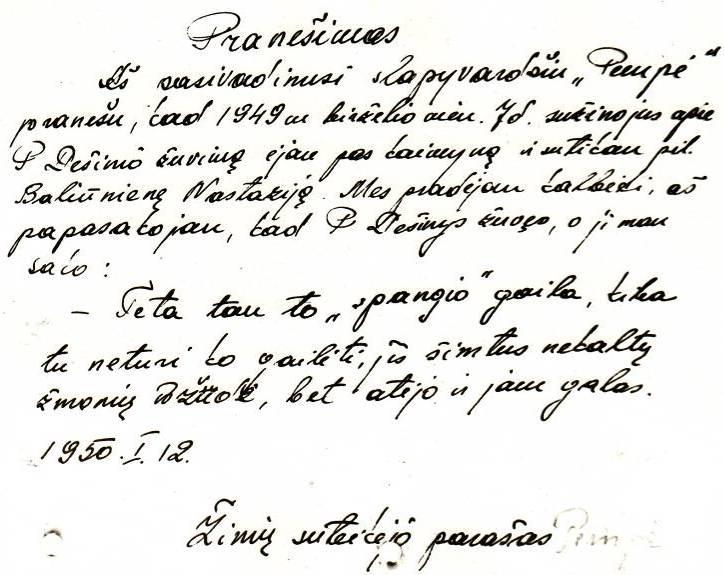 Pranešimas
Aš pasivadinusi slapyvardžiu „Pempė“
pranešu, kad 1949 m birželio mėn. 7 d. sužinojus apie
P Dešinio žuvimą ėjau pas kaimyną ir sutikau pil.
Baliūnienę Nastaziją. Mes pradėjom kalbėti, aš
papasakojau, kad P Dešinys žuvo, o ji man
sako:
– Teta tau to „spangio“ gaila,
tu neturi ko gailėti, jis šimtus nekaltų
žmonių, bet atėjo ir jam galas.
1950.I.12.
Žinių suteikėjo parašas Pempė